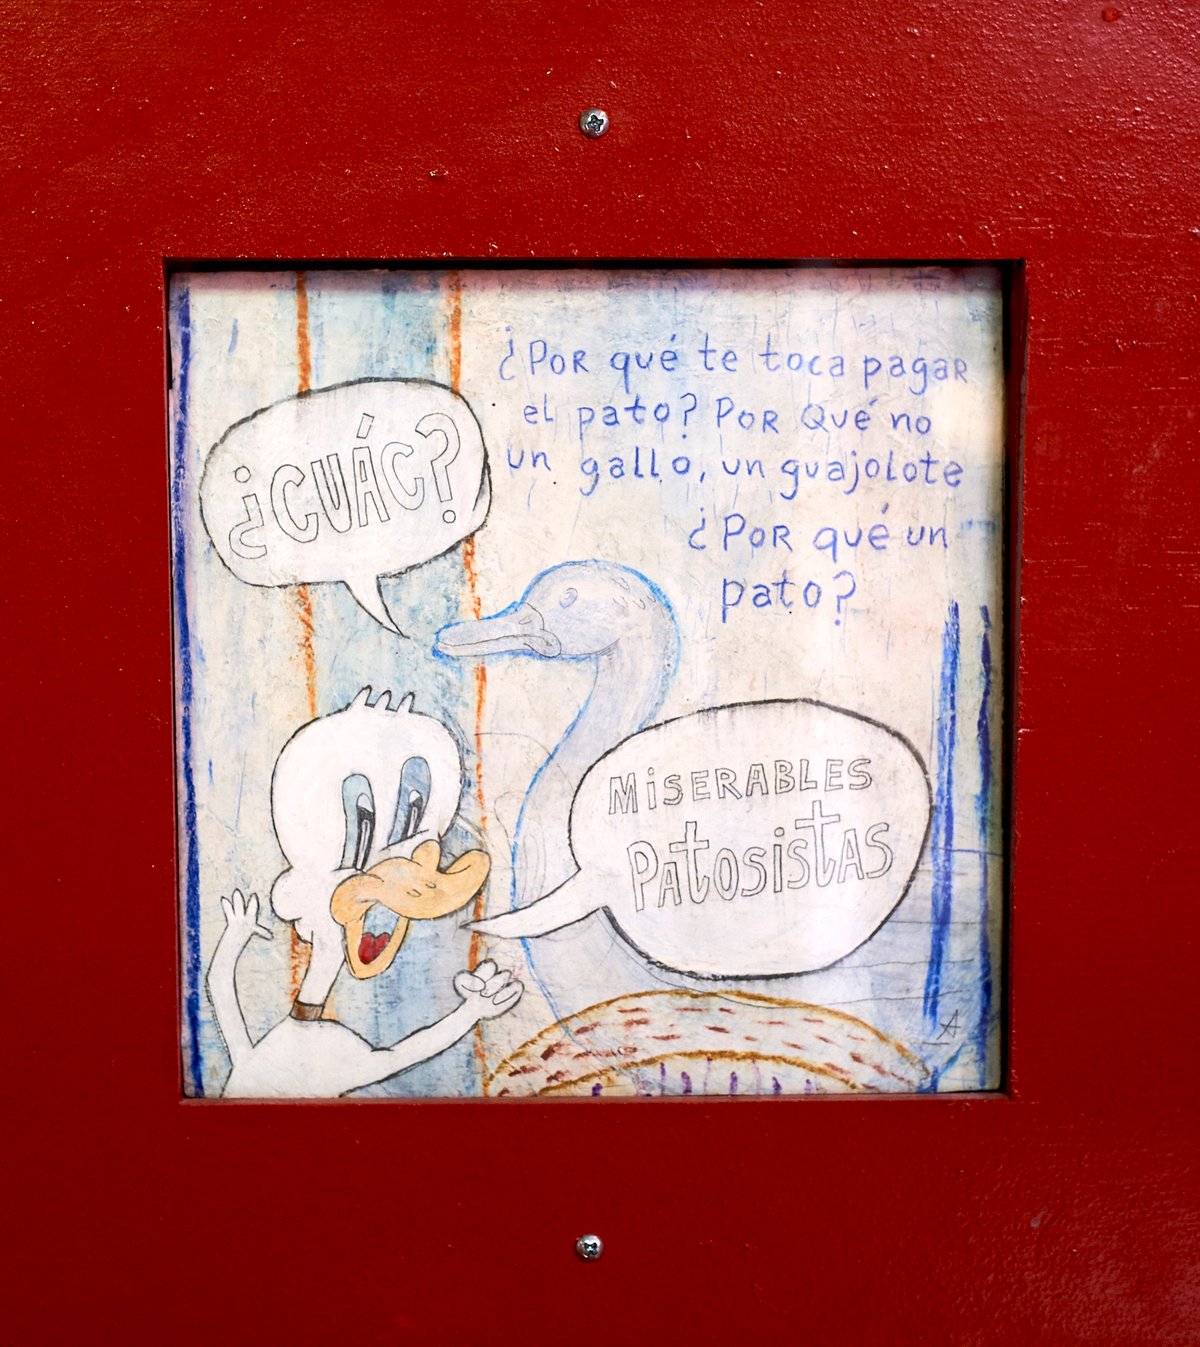 ¿Por qué te toca pagar
el pato? Por Qué no
un gallo, un guajolote
¿Por qué un
pato?
¿CUÁC?
MiSERABLES
PAtosistAS
A